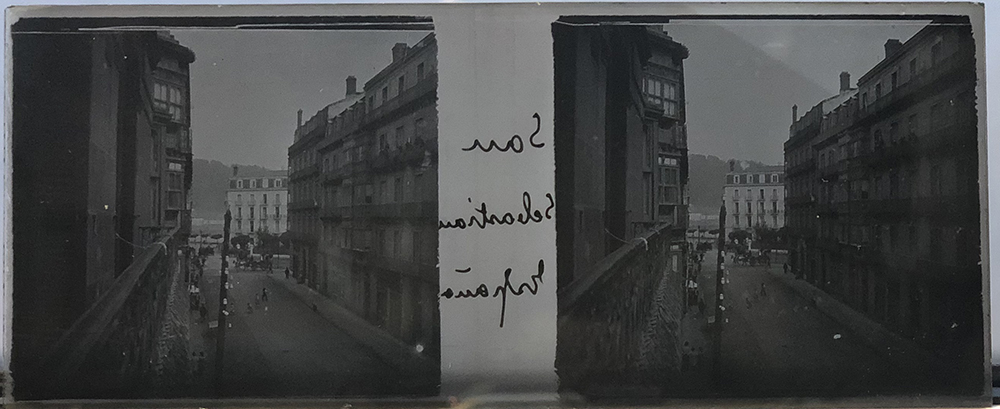 San
Sebastian
España